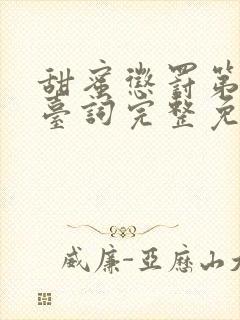 甜蜜懲罰第
臺詞完整免
威廉-亞歷山大